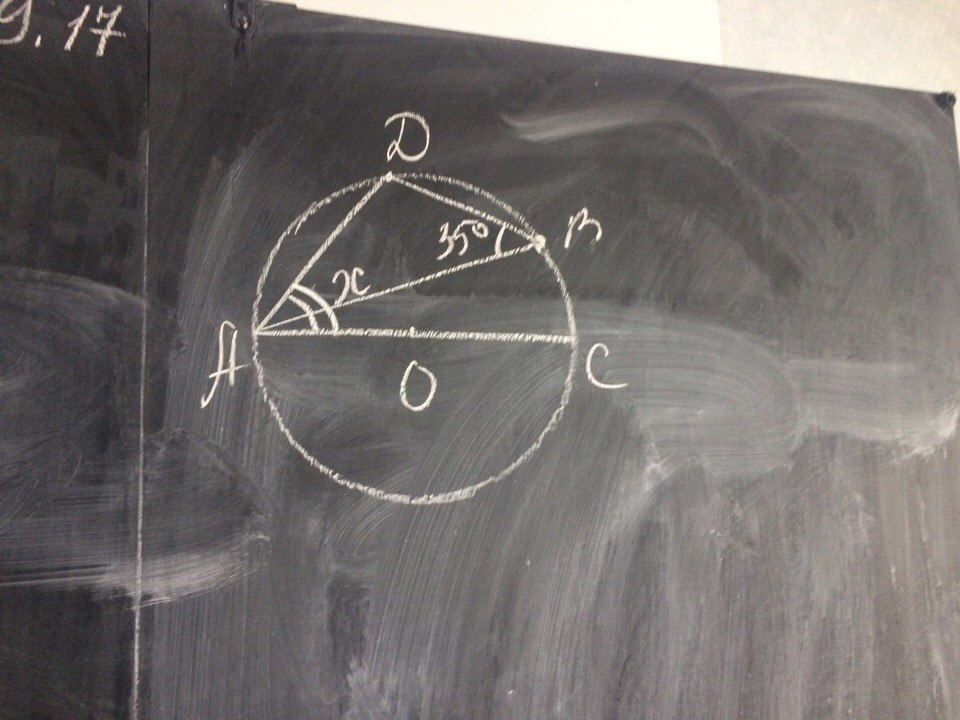 9.17
D
35°
B
x
A
O
C